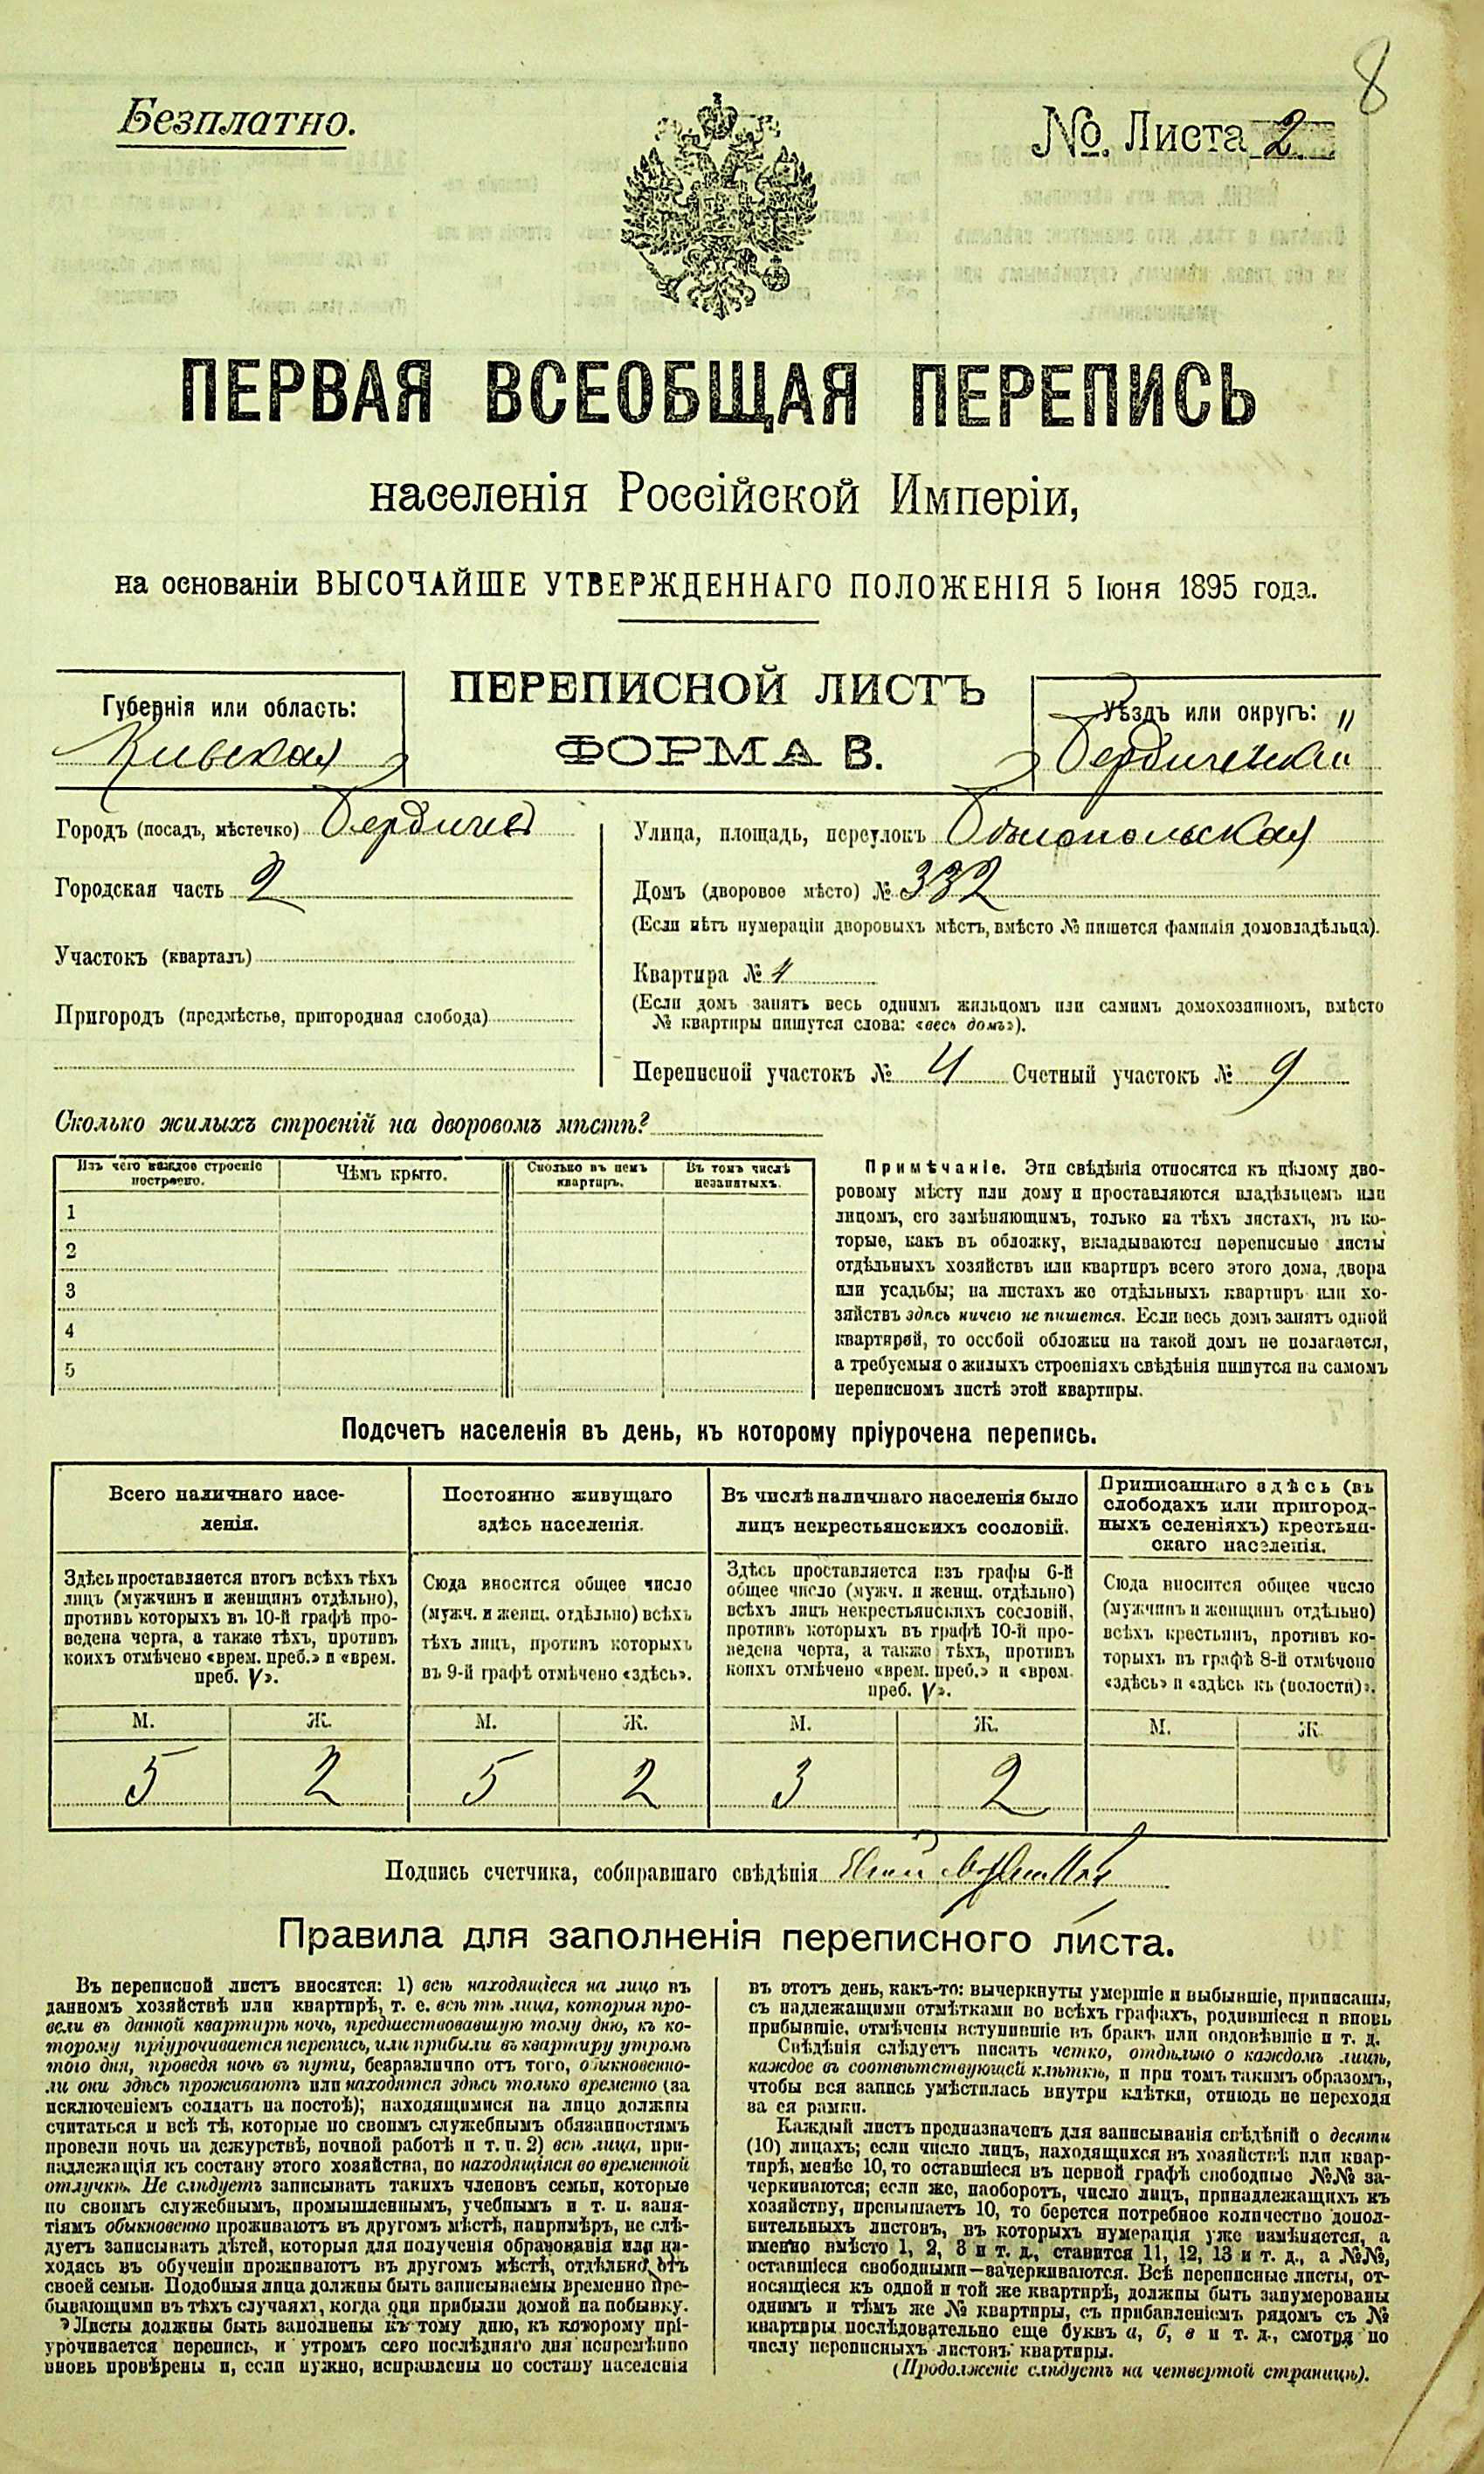 8
Безплатно.
№. Листа 2.
ПЕРВАЯ ВСЕОБЩАЯ ПЕРЕПИСЬ
населенія Россійской Имперіи,
на основаніи ВЫСОЧАЙШЕ УТВЕРЖДЕННАГО ПОЛОЖЕНІЯ 5 Іюня 1895 года.
ПЕРЕПИСНОЙ ЛИСТЪ
ФОРМА В.
Губернія или область:
Кіевская
Уѣздъ или округъ:
Бердичевскій
Городъ (посадъ, мѣстечко) Бердичев
Городская часть 2
Участокъ (кварталъ)
Пригородъ (предмѣстье, пригородная слобода)
Улица, площадь, переулокъ Бѣлопольская
Домъ (дворовое мѣсто) № 332
(Если нѣтъ нумераціи дворовыхъ мѣстъ, вмѣсто № пишется фамилія домовладѣльца).
Квартира № 4
(Если домъ занятъ весь однимъ жильцомъ или самимъ домохозяиномъ, вмѣсто
№ квартиры пишутся слова: «весь домъ»).
Переписной участокъ № 4 Счетный участокъ № 9
Сколько жилыхъ строеній на дворовомъ мѣстѣ?
Изъ чего каждое строеніе
построено.
Чѣмъ крыто.
Сколько въ немъ
квартиръ.
Въ томъ числѣ
незанятыхъ.
1
2
3
4
5
Примѣчаніе. Эти свѣдѣнія относятся къ цѣлому дво-
ровому мѣсту или дому и проставляются владѣльцемъ или
лицомъ, его замѣняющимъ, только на тѣхъ листахъ, въ ко-
торые, какъ въ обложку, вкладываются переписные листы
отдѣльныхъ хозяйствъ или квартиръ всего этого дома, двора
или усадьбы; на листахъ же отдѣльныхъ квартиръ или хо-
зяйствъ здѣсь ничего не пишется. Если весь домъ занятъ одной
квартирой, то особой обложки на такой домъ не полагается,
а требуемыя о жилыхъ строеніяхъ свѣдѣнія пишутся на самомъ
переписномъ листѣ этой квартиры.
Подсчетъ населенія въ день, къ которому пріурочена перепись.
Всего наличнаго насе-
ленія.
Здѣсь проставляется итогъ всѣхъ тѣхъ
лицъ (мужчинъ и женщинъ отдѣльно),
противъ которыхъ въ 10-й графѣ про-
ведена черта, а также тѣхъ, противъ
коихъ отмѣчено «врем. преб.» и «врем.
преб. V».
М. Ж.
5 2
Постоянно живущаго
здѣсь населенія.
Сюда вносится общее число
(мужч. и женщ. отдѣльно) всѣхъ
тѣхъ лицъ, противъ которыхъ
въ 9-й графѣ отмѣчено «здѣсь».
М. Ж.
5 2
Въ числѣ наличнаго населенія было
лицъ некрестьянскихъ сословій.
Здѣсь проставляется изъ графы 6-й
общее число (мужч. и женщ. отдѣльно)
всѣхъ лицъ некрестьянскихъ сословій,
противъ которыхъ въ графѣ 10-й про-
ведена черта, а также тѣхъ, противъ
коихъ отмѣчено «врем. преб.» и «врем.
преб. V».
М. Ж.
3 2
Приписаннаго здѣсь (въ
слободахъ или пригород-
ныхъ селеніяхъ) крестьян-
скаго населенія.
Сюда вносится общее число
(мужчинъ и женщинъ отдѣльно)
всѣхъ крестьянъ, противъ ко-
торыхъ въ графѣ 8-й отмѣчено
«здѣсь» и «здѣсь къ (волости)».
М. Ж.
Подпись счетчика, собиравшаго свѣдѣнія
Правила для заполненія переписного листа.
Въ переписной листъ вносятся: 1) всѣ находящіеся на лицо въ
данномъ хозяйствѣ или квартирѣ, т. е. всѣ тѣ лица, которыя про-
вели въ данной квартирѣ ночь, предшествовавшую тому дню, къ ко-
торому пріурочивается перепись, или прибыли въ квартиру утромъ
того дня, проведя ночь въ пути, безразлично отъ того, обыкновенно-
ли они здѣсь проживаютъ или находятся здѣсь только временно (за
исключеніемъ солдатъ на постоѣ); находящимися на лицо должны
считаться и всѣ тѣ, которые по своимъ служебнымъ обязанностямъ
провели ночь на дежурствѣ, ночной работѣ и т. п. 2) всѣ лица, при-
надлежащія къ составу этого хозяйства, но находящіяся во временной
отлучкѣ. Не слѣдуетъ записывать такихъ членовъ семьи, которые
по своимъ служебнымъ, промышленнымъ, учебнымъ и т. п. заня-
тіямъ обыкновенно проживаютъ въ другомъ мѣстѣ, напримѣръ, не слѣ-
дуетъ записывать дѣтей, которыя для полученія образованія или на-
ходясь въ обученіи проживаютъ въ другомъ мѣстѣ, отдѣльно отъ
своей семьи. Подобныя лица должны быть записываемы временно пре-
бывающими въ тѣхъ случаяхъ, когда они прибыли домой на побывку.
Листы должны быть заполнены къ тому дню, къ которому прі-
урочивается перепись, и утромъ сего послѣдняго дня непремѣнно
вновь провѣрены и, если нужно, исправлены по составу населенія
въ этотъ день, какъ-то: вычеркнуты умершіе и выбывшіе, приписаны,
съ надлежащими отмѣтками во всѣхъ графахъ, родившіеся и вновь
прибывшіе, отмѣчены вступившіе въ бракъ или овдовѣвшіе и т. д.
Свѣдѣнія слѣдуетъ писать четко, отдѣльно о каждомъ лицѣ,
каждое въ соотвѣтствующей клѣткѣ, и при томъ такимъ образомъ,
чтобы вся запись умѣстилась внутри клѣтки, отнюдь не переходя
за ея рамки.
Каждый листъ предназначенъ для записыванія свѣдѣній о десяти
(10) лицахъ; если число лицъ, находящихся въ хозяйствѣ или квар-
тирѣ, менѣе 10, то оставшіеся въ первой графѣ свободные №№ за-
черкиваются; если же, наоборотъ, число лицъ, принадлежащихъ къ
хозяйству, превышаетъ 10, то берется потребное количество допол-
нительныхъ листовъ, въ которыхъ нумерація уже измѣняется, а
именно вмѣсто 1, 2, 3 и т. д., ставится 11, 12, 13 и т. д., а №№,
оставшіеся свободными—зачеркиваются. Всѣ переписные листы, от-
носящіеся къ одной и той же квартирѣ, должны быть занумерованы
однимъ и тѣмъ же № квартиры, съ прибавленіемъ рядомъ съ №
квартиры послѣдовательно еще буквъ а, б, в и т. д., смотря по
числу переписныхъ листовъ квартиры.
(Продолженіе слѣдуетъ на четвертой страницѣ).